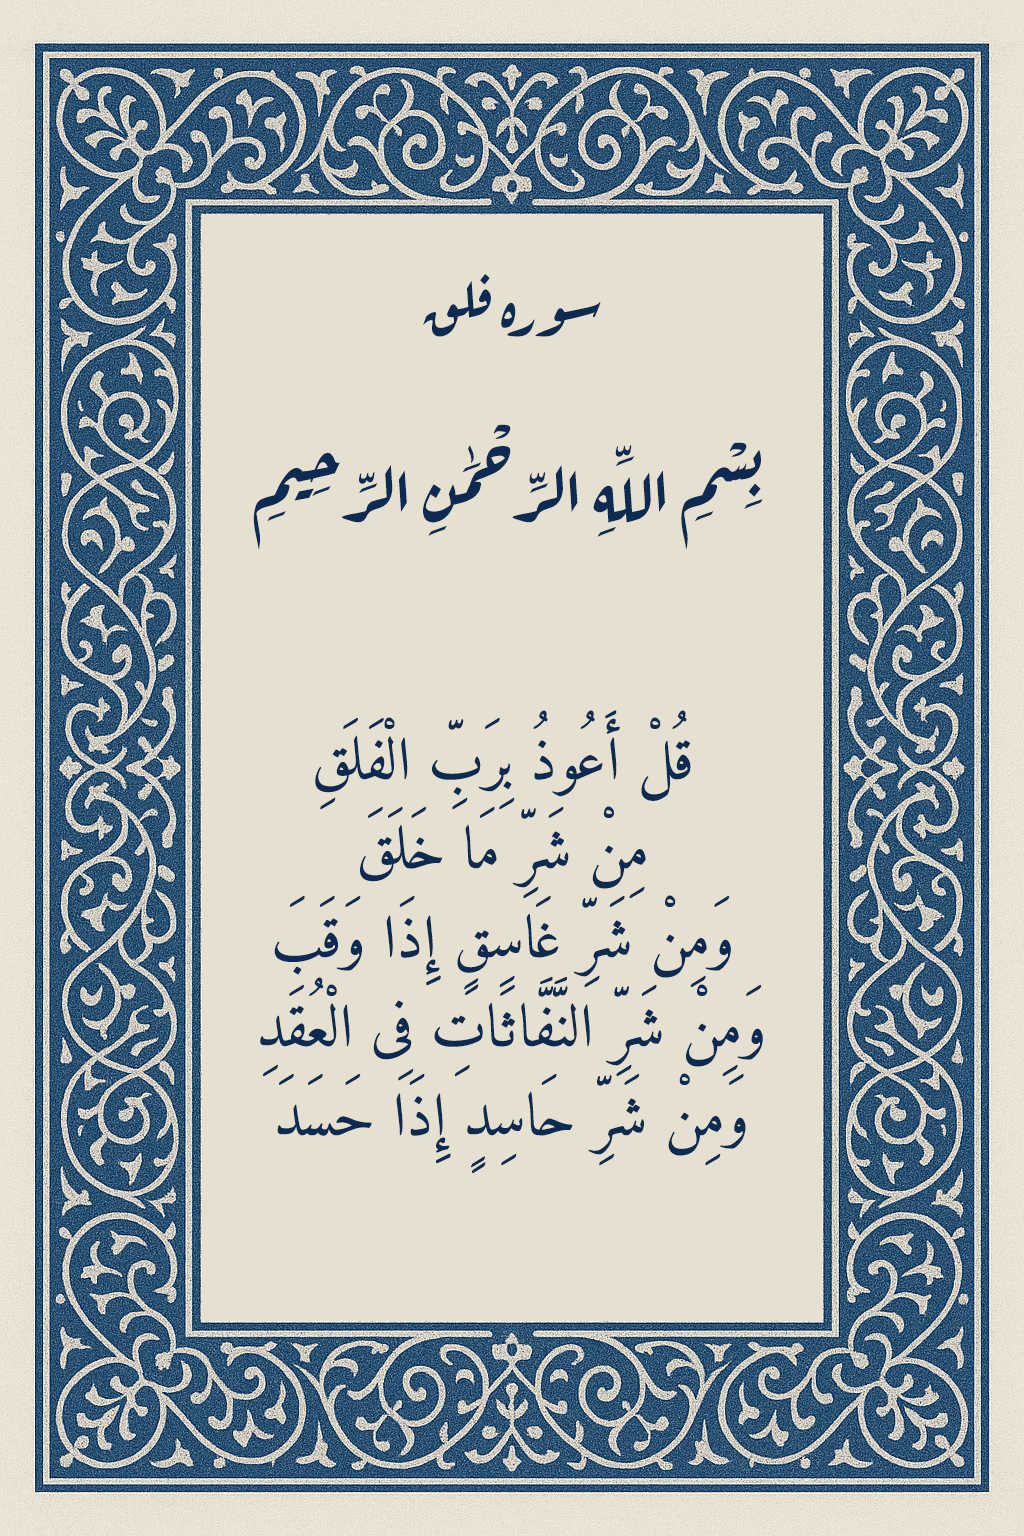 سوره فلق
بِسْمِ اللَّهِ الرَّحْمَٰنِ الرَّحِيمِ
قُلْ أَعُوذُ بِرَبِّ الْفَلَقِ
مِنْ شَرِّ مَا خَلَقَ
وَمِنْ شَرِّ غَاسِقٍ إِذَا وَقَبَ
وَمِنْ شَرِّ النَّفَّاثَاتِ فِی الْعُقَدِ
وَمِنْ شَرِّ حَاسِدٍ إِذَا حَسَدَ